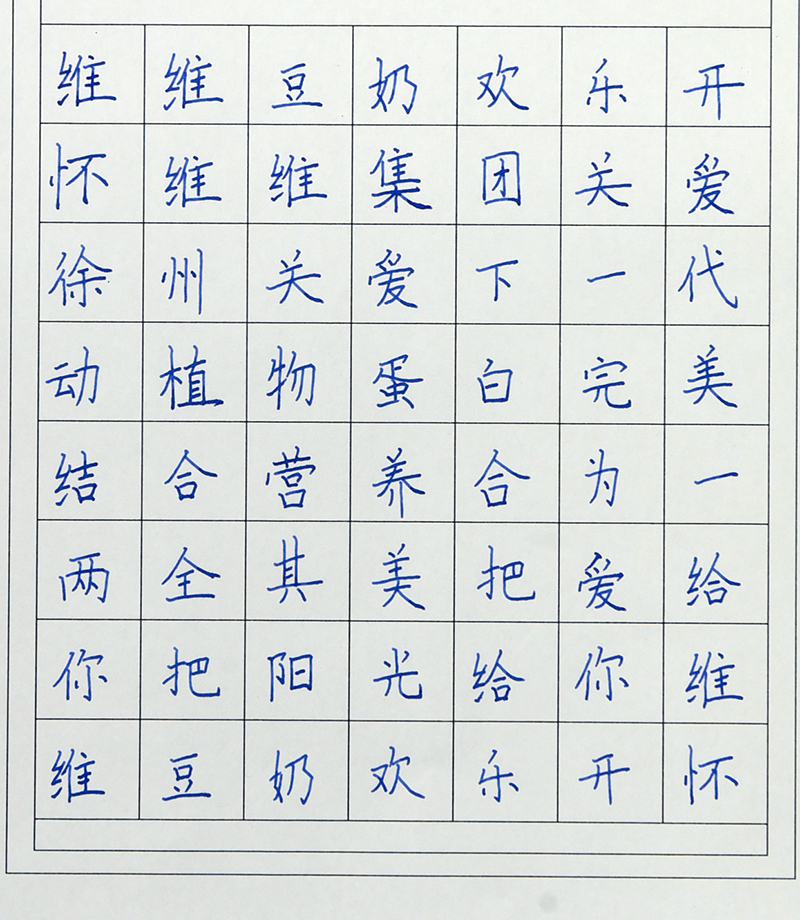 维维豆奶欢乐开
怀维维集团关爱
徐州关爱下一代
动植物蛋白完美
结合营养合为一
两全其美把爱给
你把阳光给你维
维豆奶欢乐开怀